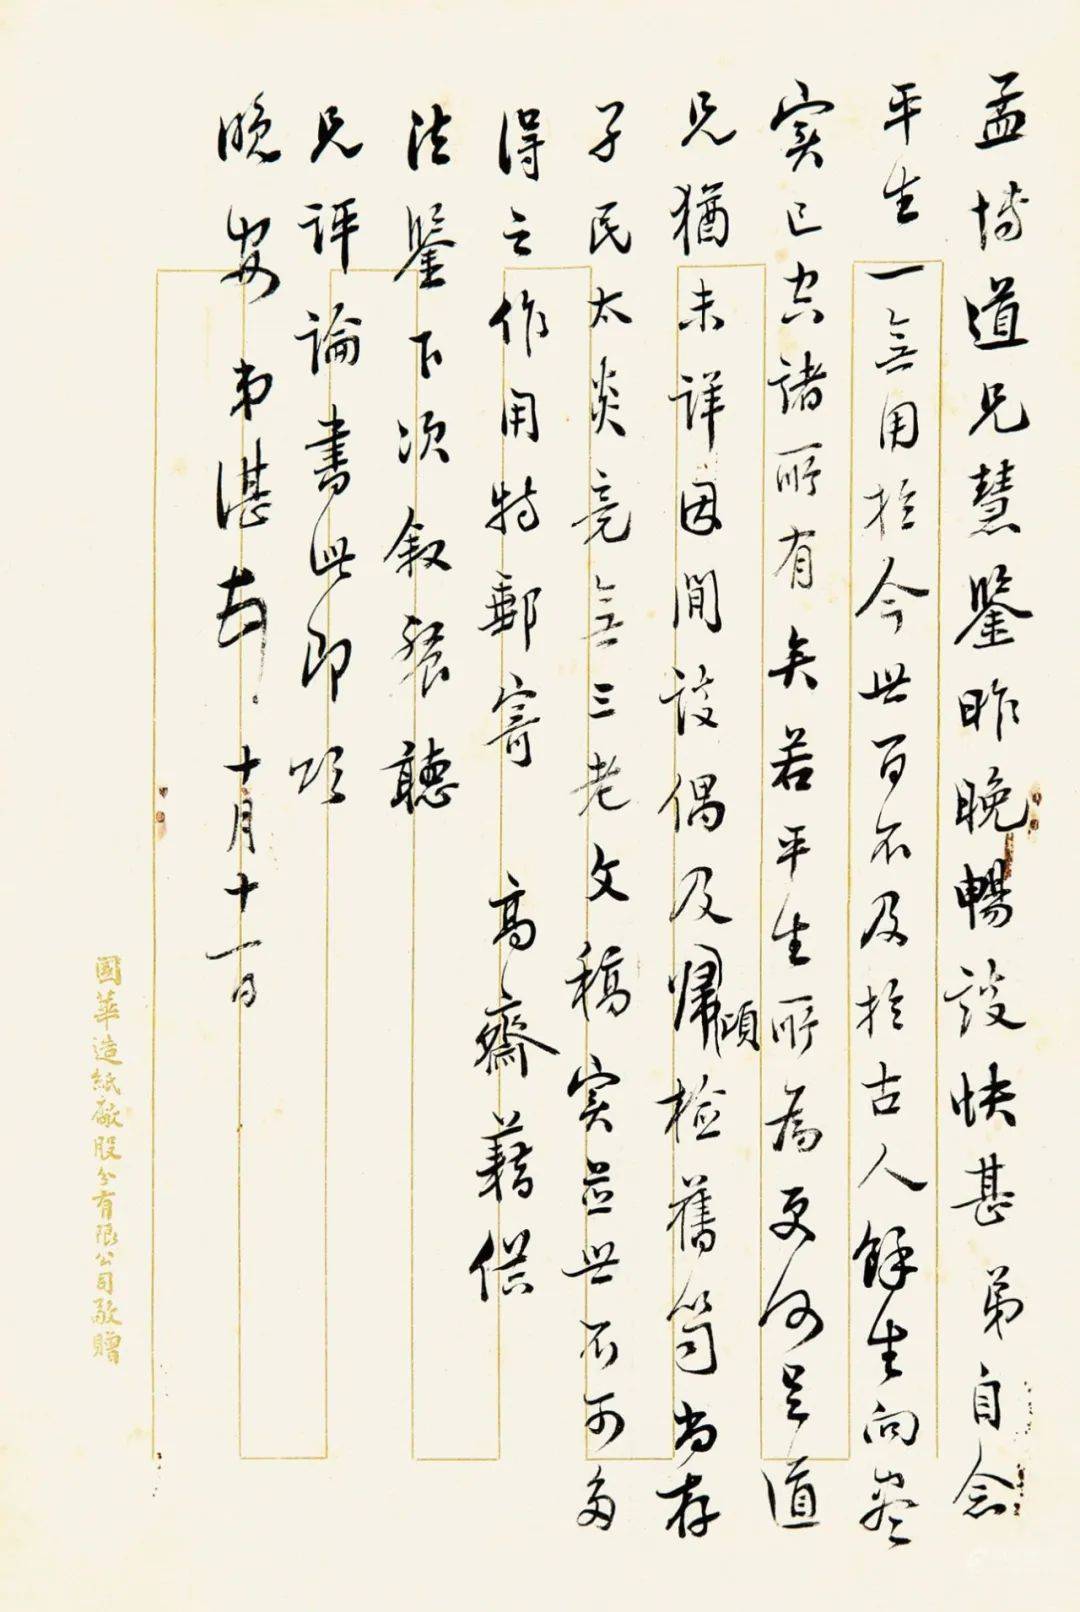 孟博道兄慧鑒昨晚暢談快甚弟自念
平生一無用於今世百不及於古人餘生向盡
實已空諸所有矣若平生所為更何足道
兄猶未詳因閒談偶及歸頃檢舊笥尚存
孑民太炎竟無三老文稿實並世不可多
得之作用特郵寄高齋藉供
法鑒下次敘餐聽
兄評論書此即頌
晚安弟湛 十月十一日
國華造紙廠股分有限公司敬贈